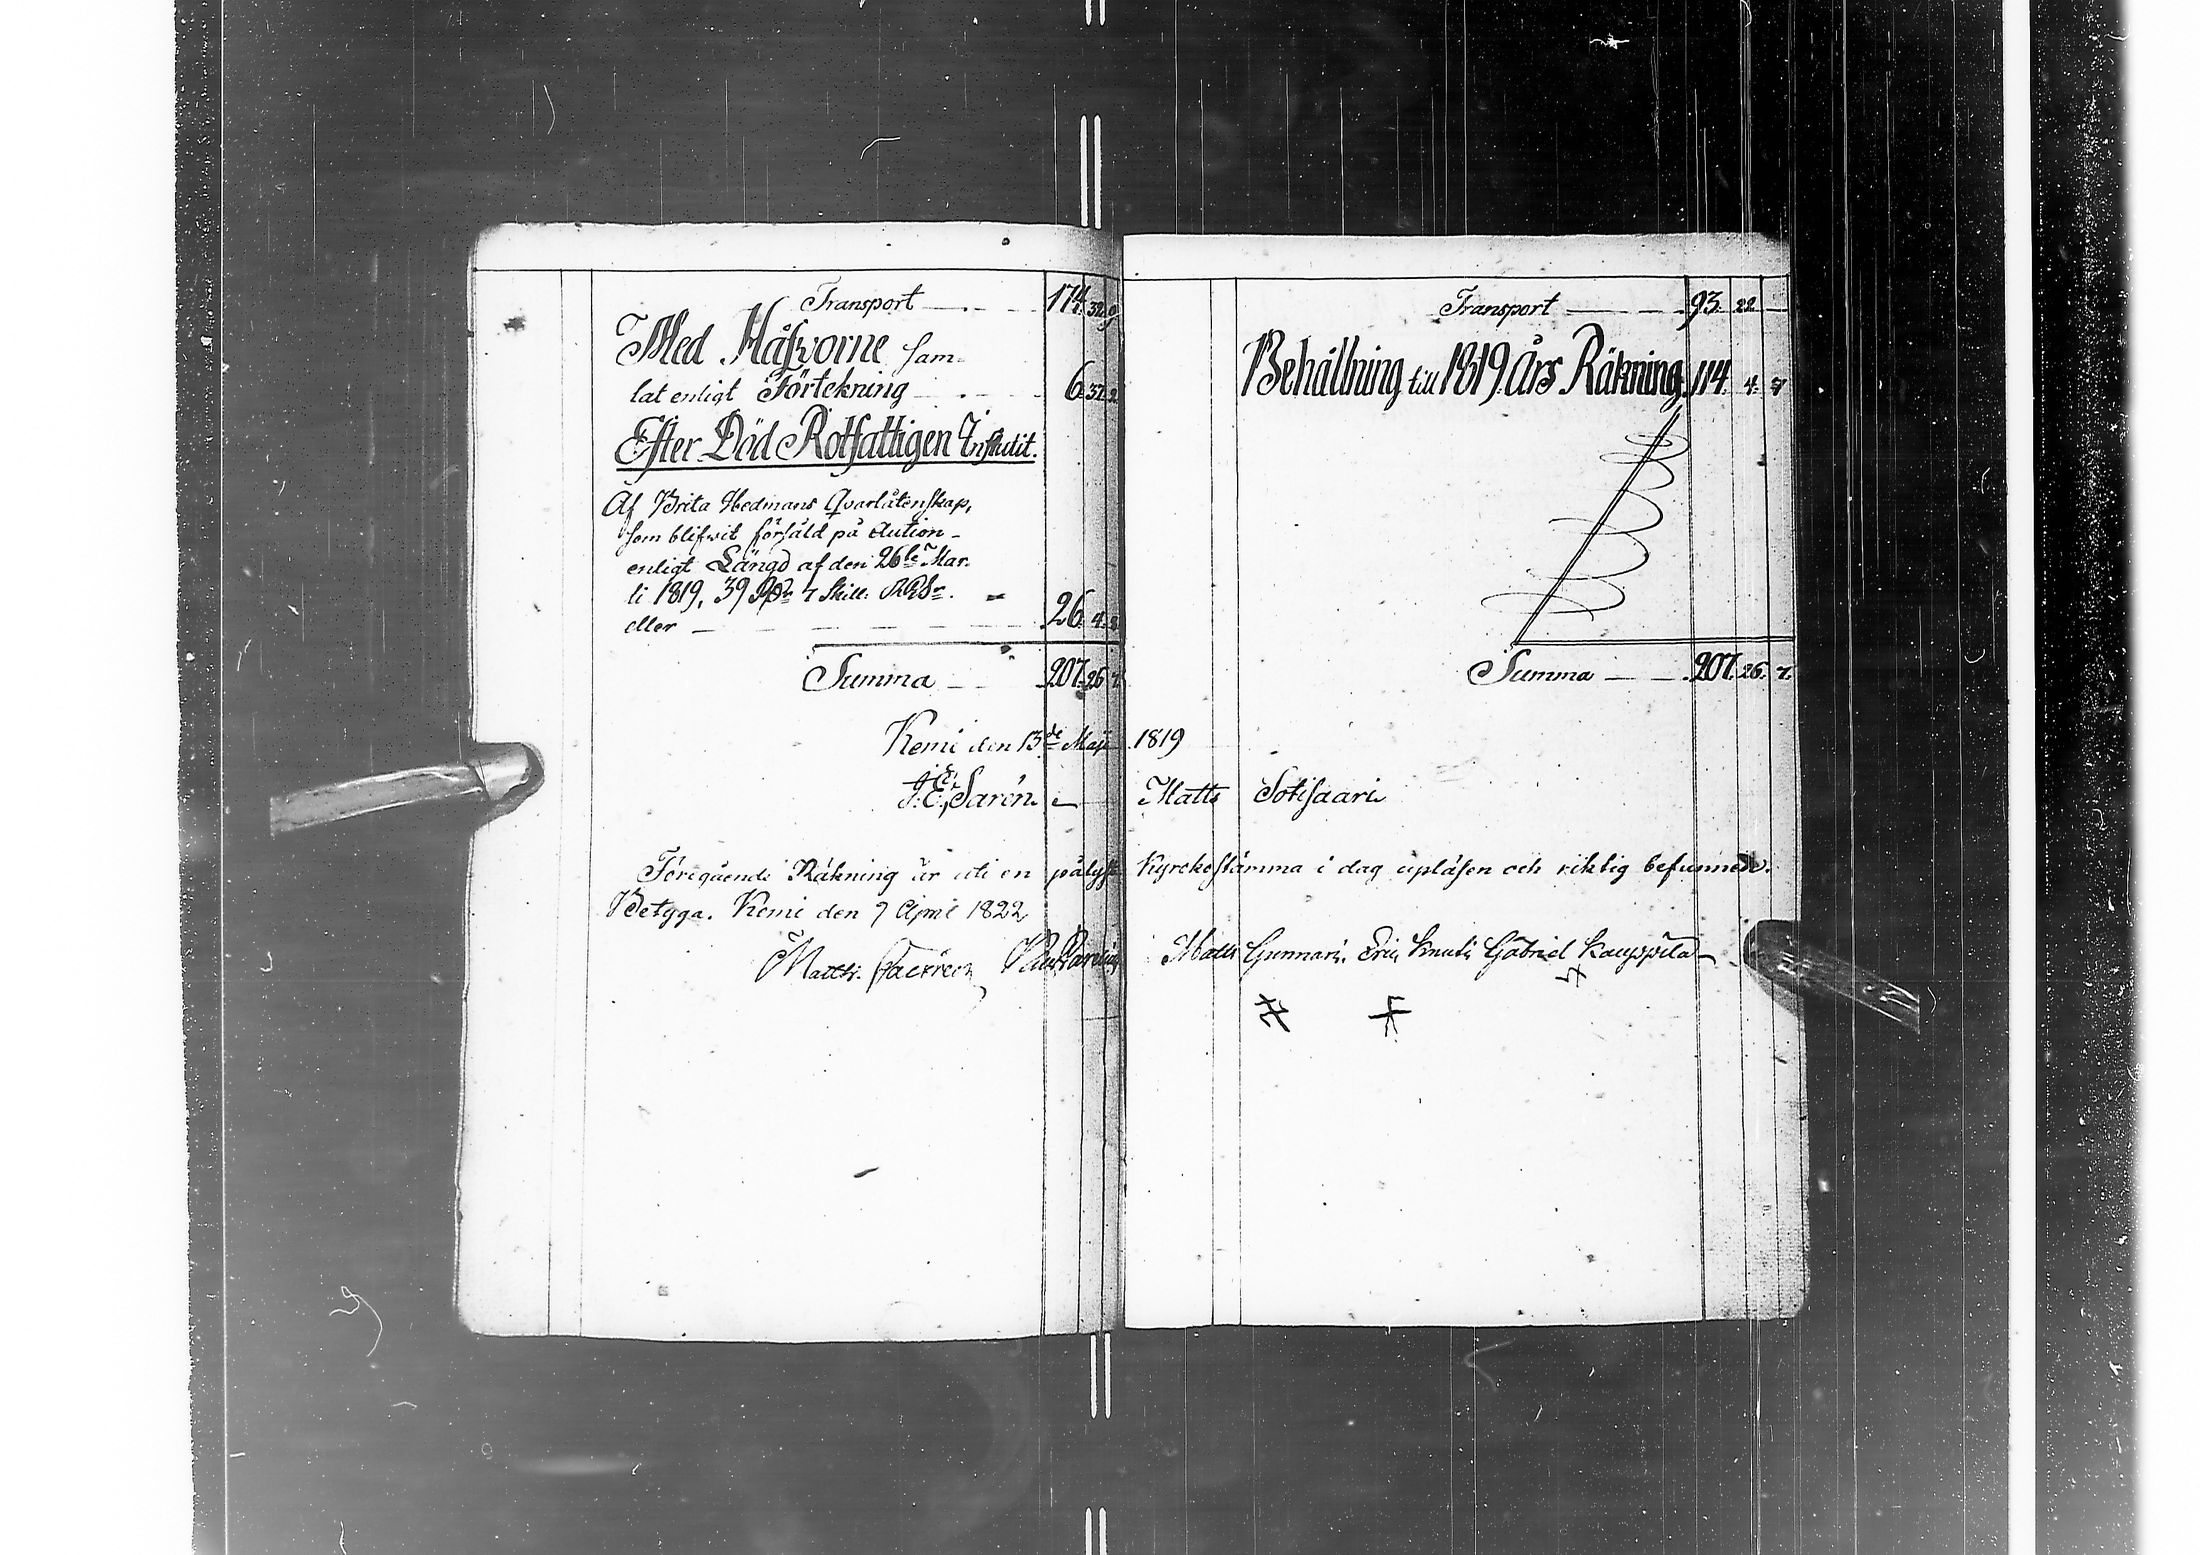 Transport 174. 32. 9
Med Håfvorne sam-
lat enligt Förtekning 6. 37. 2
Efter Död Rotfattigen Influtit.
Af Brita Hedmans Qvarlåtenskap,
som blifvit försåld på Aution
enligt Längd af den 26te Mar-
ti 1819, 39 Rdr 7 Skill. RGS
eller 26. 4. 8
Summa 207. 26. 7
Transport 93. 22. —
Behållning till 1819 Års Räkning 114. 4. 7
Summa 207. 26. 7.
Kemi den 13de Maji 1819
J: E: Sarén Matts Sotisaari
Föregående Räkning är uti en pålyst Kyrckostämma i dag upläsen och riktig befunnen.
Betyga. Kemi den 7 April 1822
Matth. Matts Gunnari. Eric Knuti Gabriel Kauppila